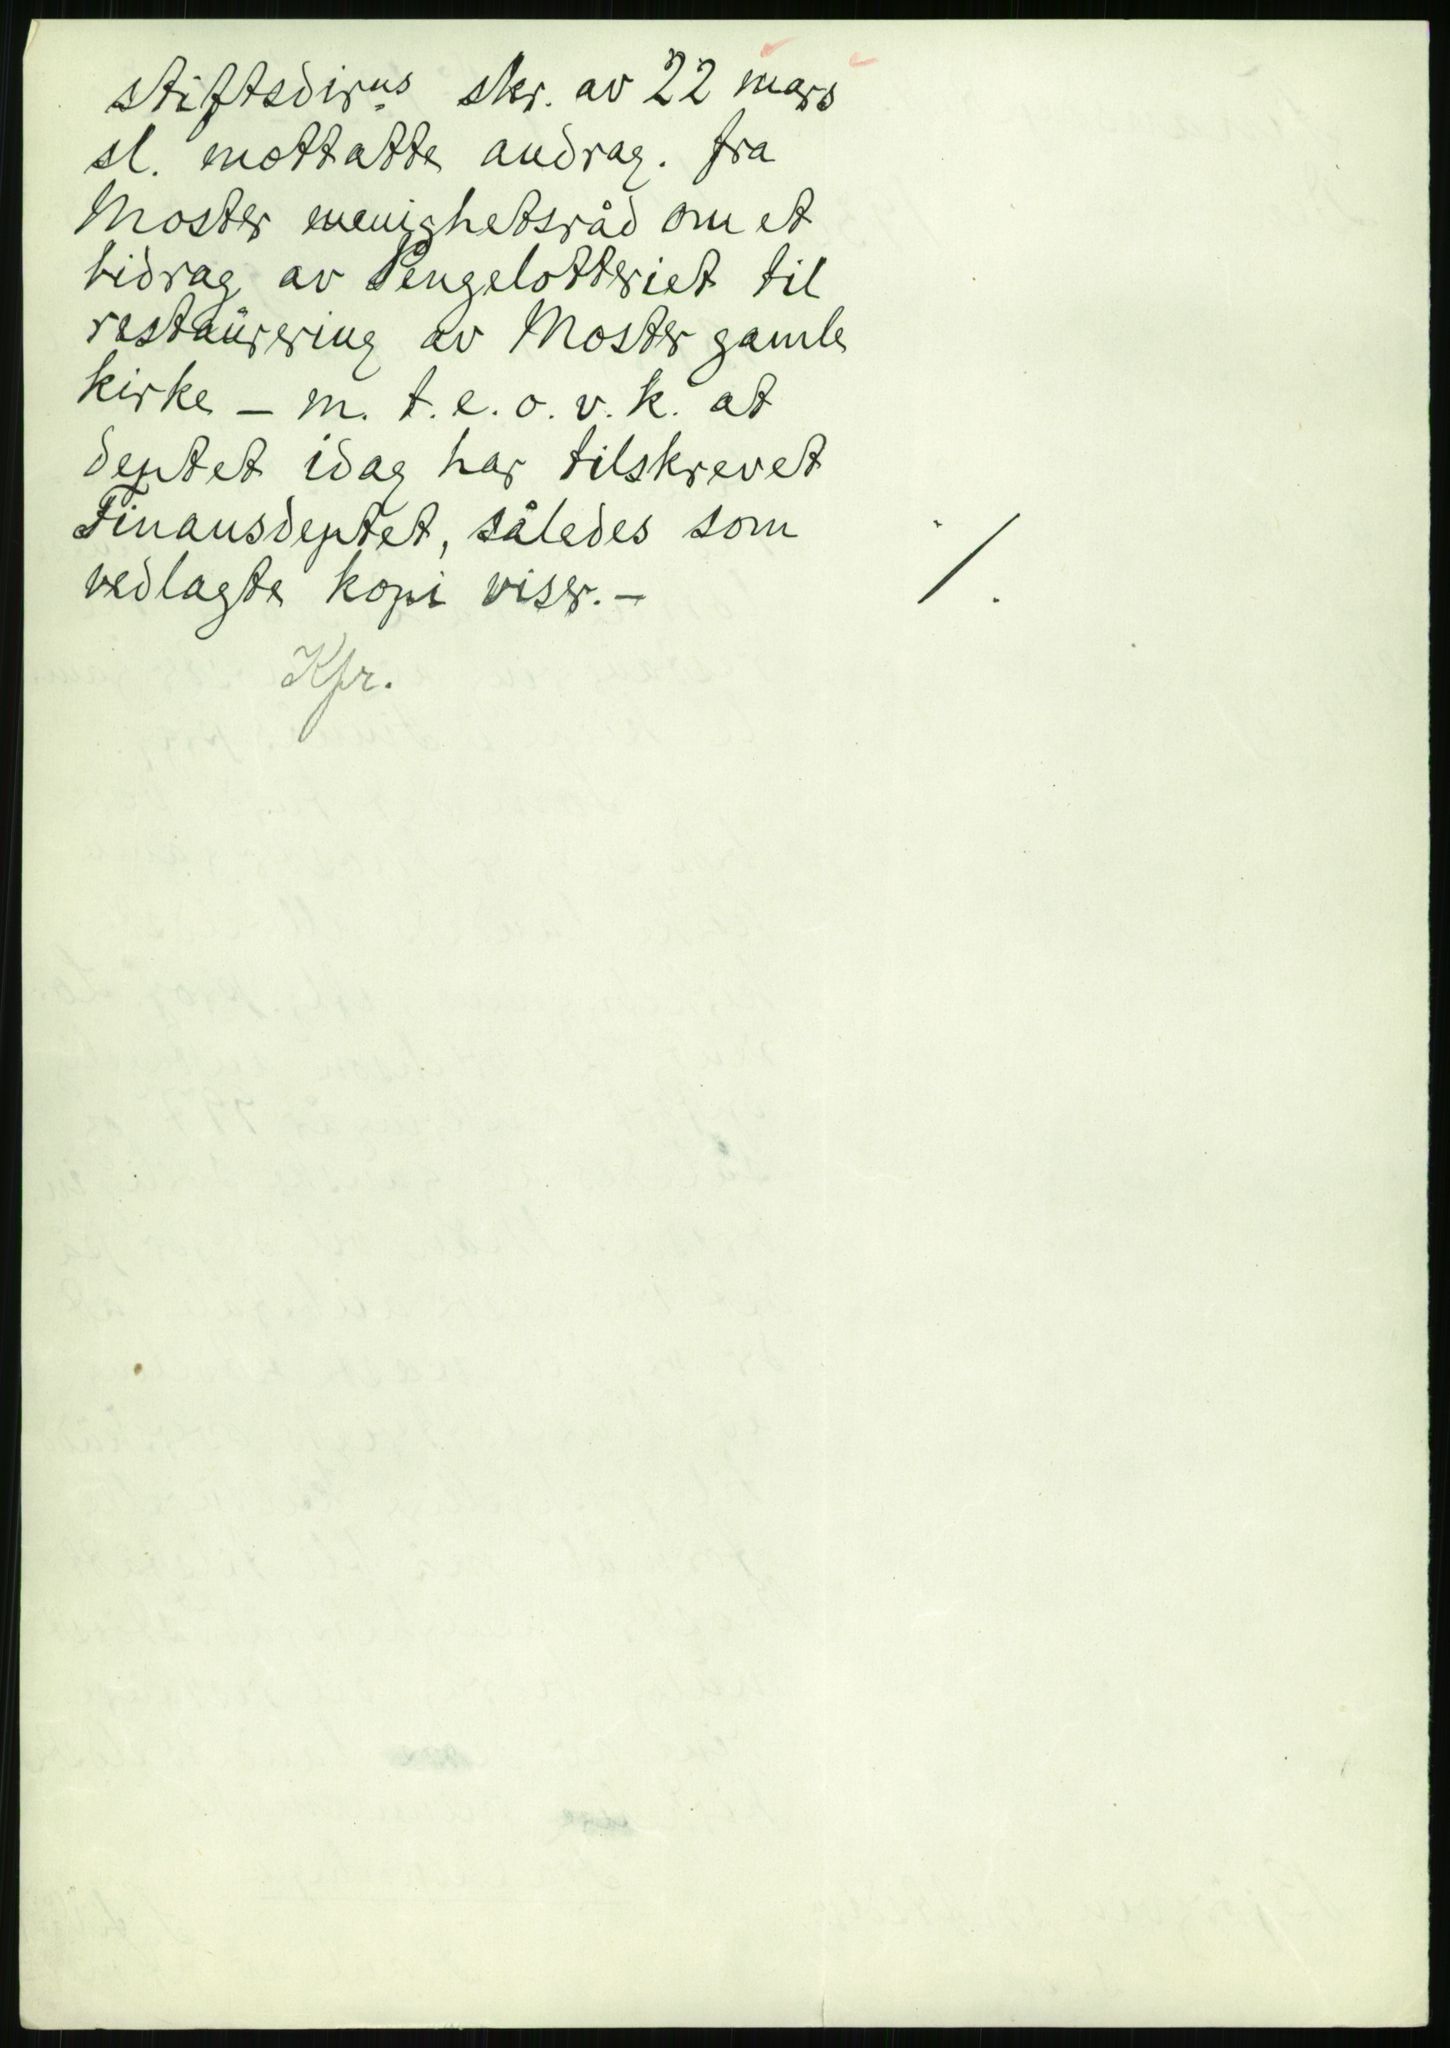 stiftsdirns skr. av 22 mars
sl. mottatte andrag. fra
Moster menighetsråd om et
bidrag av Pengelotteriet til
restaurering av Moster gamle
kirke – m. t. e. o. v. k. at
deptet idag har tilskrevet
Finansdeptet, således som
vedlagte kopi viser. – ·/.
Kpr.